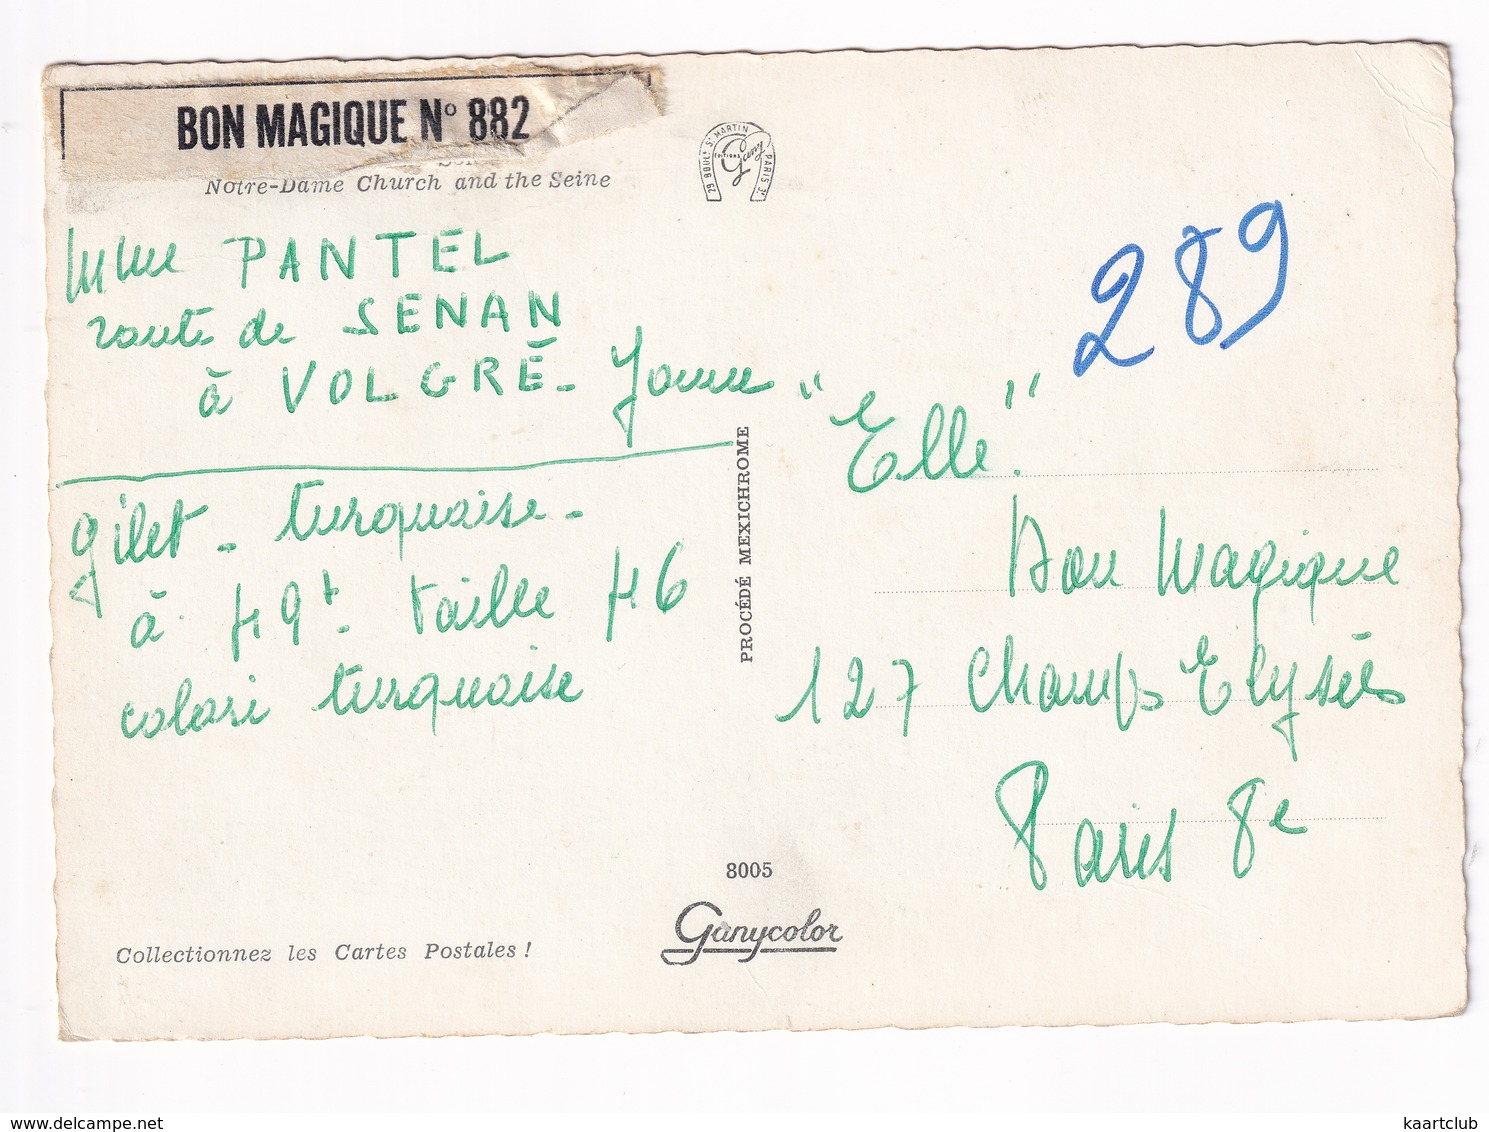 BON MAGIQUE N° 882
Notre-Dame Church and the Seine
29 BOUL. ST MARTIN PARIS 3e
EDITIONS
Gany
289
Mme PANTEL
route de SENAN
à VOLGRÉ - Yonne
gilet - turquoise -
à 49t taille 46
colori turquoise
PROCÉDÉ MEXICHROME
"Elle"
Bon Magique
127 Champs Elysées
Paris 8e
8005
Ganycolor
Collectionnez les Cartes Postales !
www.delcampe.net
kaartclub